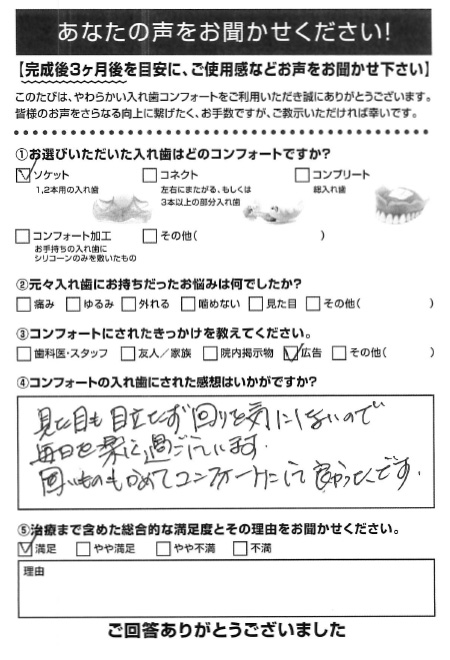 あなたの声をお聞かせください!
【完成後3ヶ月後を目安に、ご使用感などお声をお聞かせ下さい】
このたびは、やわらかい入れ歯コンフォートをご利用いただき誠にありがとうございます。
皆様のお声をさらなる向上に繋げたく、お手数ですが、ご教示いただければ幸いです。
①お選びいただいた入れ歯はどのコンフォートですか?
ソケット コネクト コンプリート
1,2本用の入れ歯 左右にまたがる、もしくは 総入れ歯
3本以上の部分入れ歯
コンフォート加工 その他( )
お手持ちの入れ歯に
シリコーンのみを敷いたもの
②元々入れ歯にお持ちだったお悩みは何でしたか?
痛み ゆるみ 外れる 噛めない 見た目 その他( )
③コンフォートにされたきっかけを教えてください。
歯科医・スタッフ 友人/家族 院内掲示物 広告 その他( )
④コンフォートの入れ歯にされた感想はいかがですか?
見た目も目立たず回りを気にしないので
毎日を楽に過ごしています.
固いものもかめてコンフォートにして良かったです.
⑤治療まで含めた総合的な満足度とその理由をお聞かせください。
満足 やや満足 やや不満 不満
理由
ご回答ありがとうございました